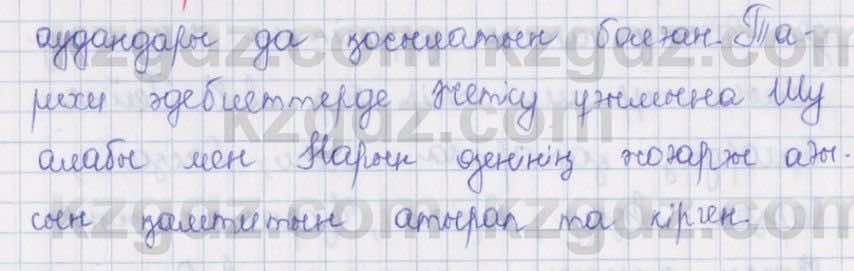 аудандары да қосылатын болған. Та-
рихи әдебиеттерде Жетісу ұғымына Шу
алабы мен Нарын өзенінің жоғарғы ағы-
сын қамтитын атырап та кірген.
kzgdz.com